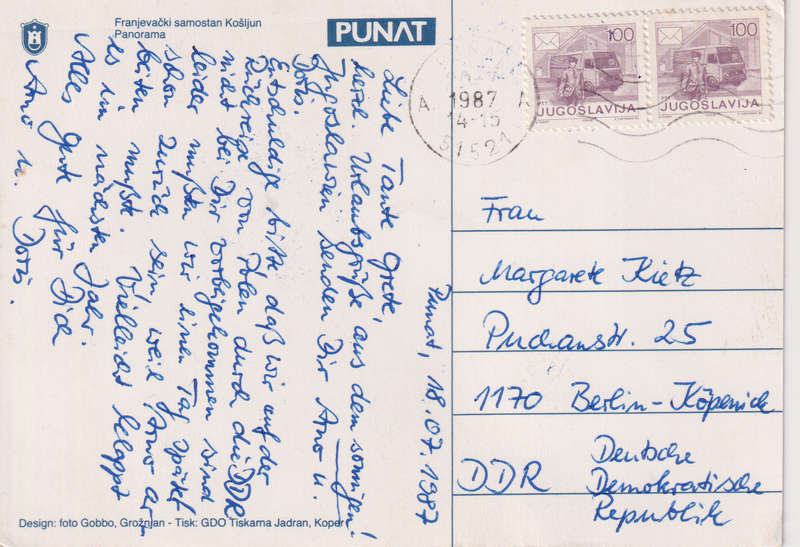 Franjevački samostan Košljun
Panorama
PUNAT
Punat, 18.07.1987
Liebe Tante Grete,
herzl. Urlaubsgrüße aus dem sonnigen
Jugoslawien senden Dir Arno u.
Doris.
Entschuldige bitte daß wir auf der
Rückreise von Polen durch die DDR
nicht bei Dir vorbeigekommen sind
leider mußten wir einen Tag später
schon zurück sein, weil Arno ar-
beiten mußte. Vielleicht kelappt
es im nächsten Jahr.
Alles Gute für Dich
Arno u. Doris.
Design: foto Gobbo, Grožnjan - Tisk: GDO Tiskarna Jadran, Koper
100
JUGOSLAVIJA
100
JUGOSLAVIJA
A 1987 A
14-15
57521
Frau
Margarete Kietz
Puchanstr. 25
1170 Berlin-Köpenick
DDR Deutsche
Demokratische
Republik